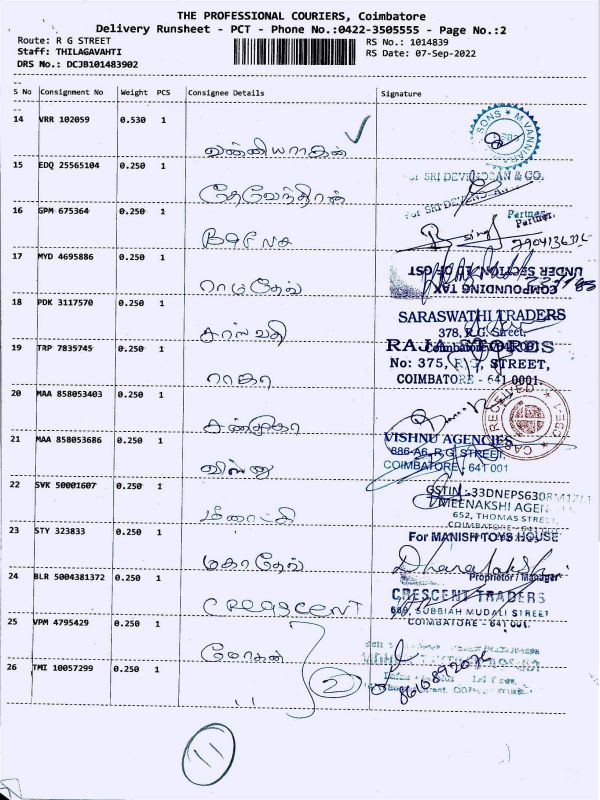 THE PROFESSIONAL COURIERS, Coimbatore
Delivery Runsheet - PCT - Phone No.:0422-3505555 - Page No.:2
Route: R G STREET
RS No.: 1014839
Staff: THILAGAVAHTI
RS Date: 07-Sep-2022
DRS No.: DCJB101483902
S No Consignment No Weight PCS Consignee Details Signature
14 VRR 102059 0.530 1
வன்னியராஜன்
SONS * M.VANNIARA
15 EDQ 25565104 0.250 1
தேவேந்திரன்
For SRI DEVENDRAN & CO.
For SRI DEVENDRAN
Partner.
Partner.
16 GPM 675364 0.250 1
7904136316
17 MYD 4695886 0.250 1
ராமதேவ்
COMPOUNDING TAX
UNDER SECTION 10 OF GST
18 PDK 3117570 0.250 1
சரஸ்வதி
SARASWATHI TRADERS
378, R.G. Street,
Coimbatore - 641 001
19 TRP 7835745 0.250 1
ராஜா
RAJA STORES
No: 375, R.G. STREET,
COIMBATORE - 641 0001.
20 MAA 858053403 0.250 1
சண்முகா
RECEIVED
21 MAA 858053686 0.250 1
விஸ்ணு
VISHNU AGENCIES
886-A6, R.G. STREET
COIMBATORE - 641 001
22 SVK 50001607 0.250 1
மீனாட்சி
GSTIN :33DNEPS6308M1ZL
MEENAKSHI AGEN
652, THOMAS STREET,
COIMBATORE - 641 001
23 STY 323833 0.250 1
மகாதேவ்
For MANISH TOYS HOUSE
Dhanalakshmi
Proprietor / Manager
24 BLR 5004381372 0.250 1
CRESCENT
CRESCENT TRADERS
689, SUBBIAH MUDALI STREET
COIMBATORE - 641 001.
25 VPM 4795429 0.250 1
மோகன்
26 TMI 10057299 0.250 1
" "
2
8610892076
11